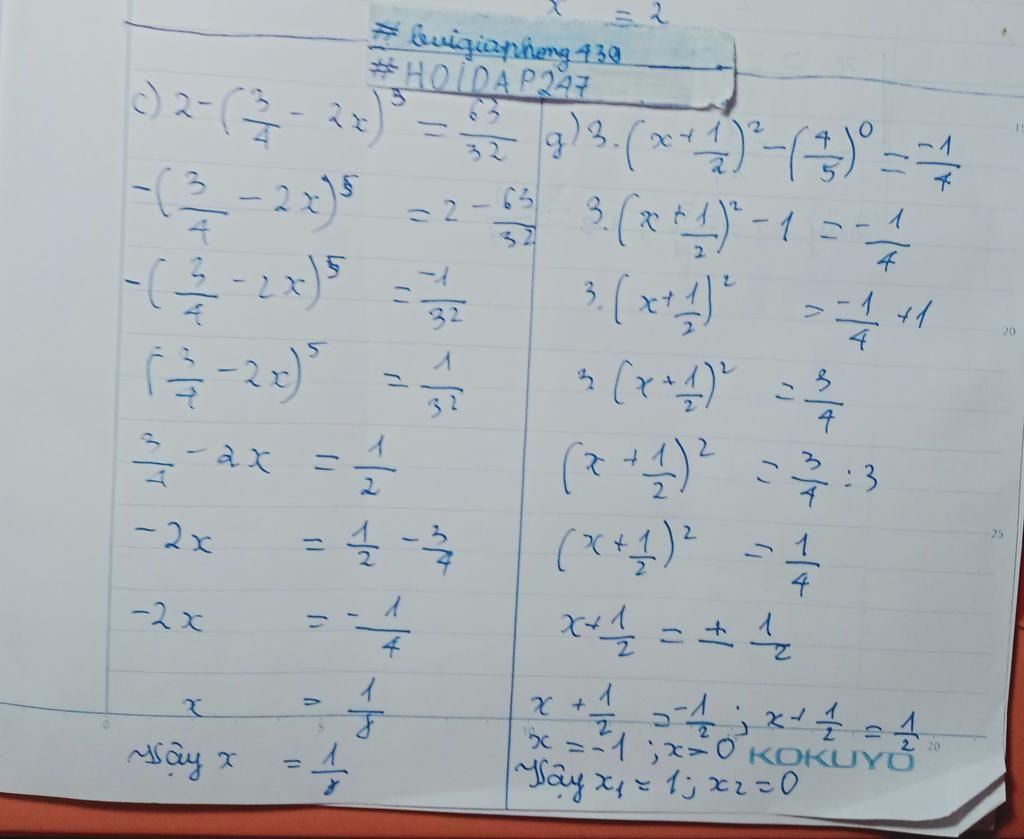 x = 2
# buigiaphong439
# HOIDAP247
c) 2 - (3/4 - 2x)^3 = 63/32
-(3/4 - 2x)^5 = 2 - 63/32
-(3/4 - 2x)^5 = -1/32
(3/4 - 2x)^5 = 1/32
3/4 - 2x = 1/2
-2x = 1/2 - 3/4
-2x = -1/4
x = 1/8
Vậy x = 1/8
g) 3.(x + 1/2)^2 - (4/5)^0 = -1/4
3.(x + 1/2)^2 - 1 = -1/4
3.(x + 1/2)^2 = -1/4 + 1
3.(x + 1/2)^2 = 3/4
(x + 1/2)^2 = 3/4 : 3
(x + 1/2)^2 = 1/4
x + 1/2 = ± 1/2
x + 1/2 = -1/2 ; x + 1/2 = 1/2
x = -1 ; x = 0
Vậy x1 = 1 ; x2 = 0
KOKUYO
15
20
25
0
5
20